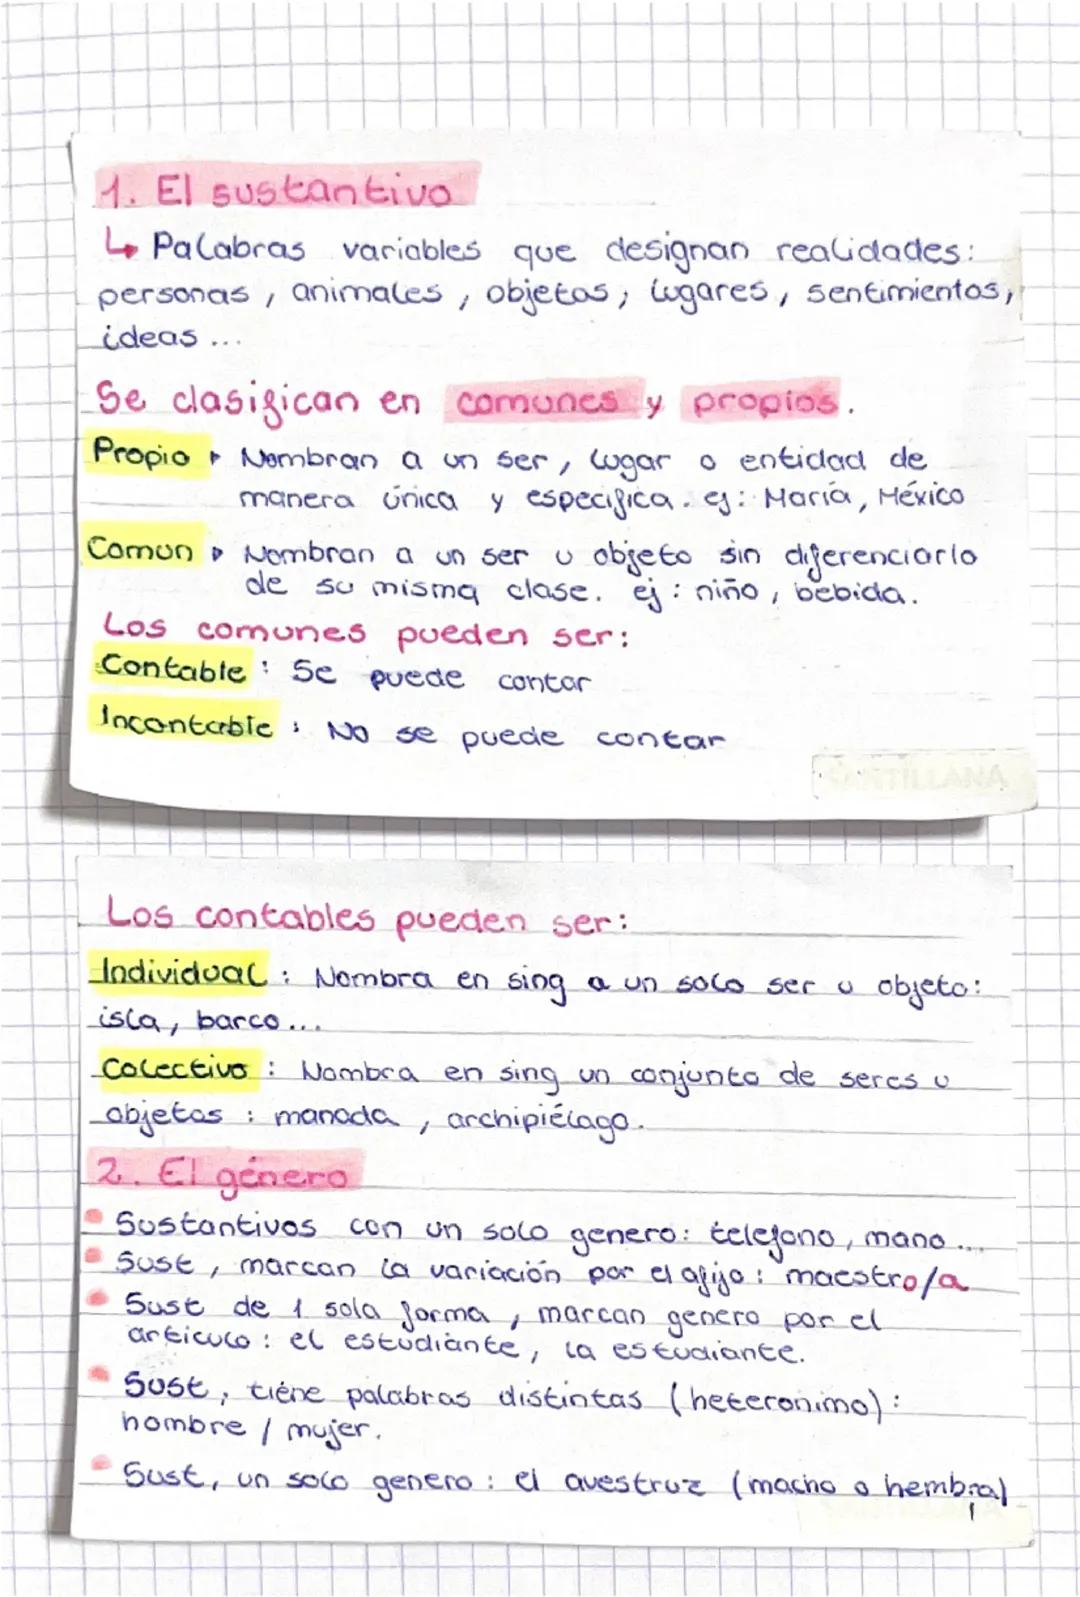 1. El sustantivo
↳ Palabras variables que designan realidades:
personas, animales, objetos, lugares, sentimientos,
ideas...
Se clasifican en comunes y propios.
Propio ▸ Nombran a un ser, lugar o entidad de
manera única y especifica. ej: María, México
Comun ▸ Nombran a un ser u objeto sin diferenciarlo
de su misma clase. ej: niño, bebida.
Los comunes pueden ser:
Contable: Se puede contar
Incontable: No se puede contar
SANTILLANA
Los contables pueden ser:
Individual: Nombra en sing a un solo ser u objeto:
isla, barco...
Colectivo: Nombra en sing un conjunto de seres u
objetos: manada, archipiélago.
2. El género
• Sustantivos con un solo genero: telefono, mano...
• Sust, marcan la variación por el afijo: maestro/a
• Sust de 1 sola forma, marcan genero por el
articulo: el estudiante, la estudiante.
• Sust, tiene palabras distintas (heteronimo):
hombre / mujer.
• Sust, un solo genero: el avestruz (macho o hembra)